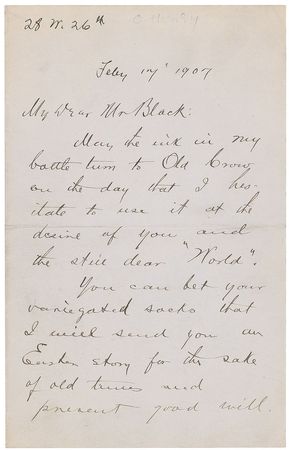 28 W. 26th
Feby 17 1907
My Dear Mr Black:
May the ink in my
bottle turn to Old Crow
on the day that I hes-
itate to use it at the
desire of you and
the still dear "World".
You can bet your
variegated socks that
I will send you an
Easter story for the sake
of old times and
present good will.